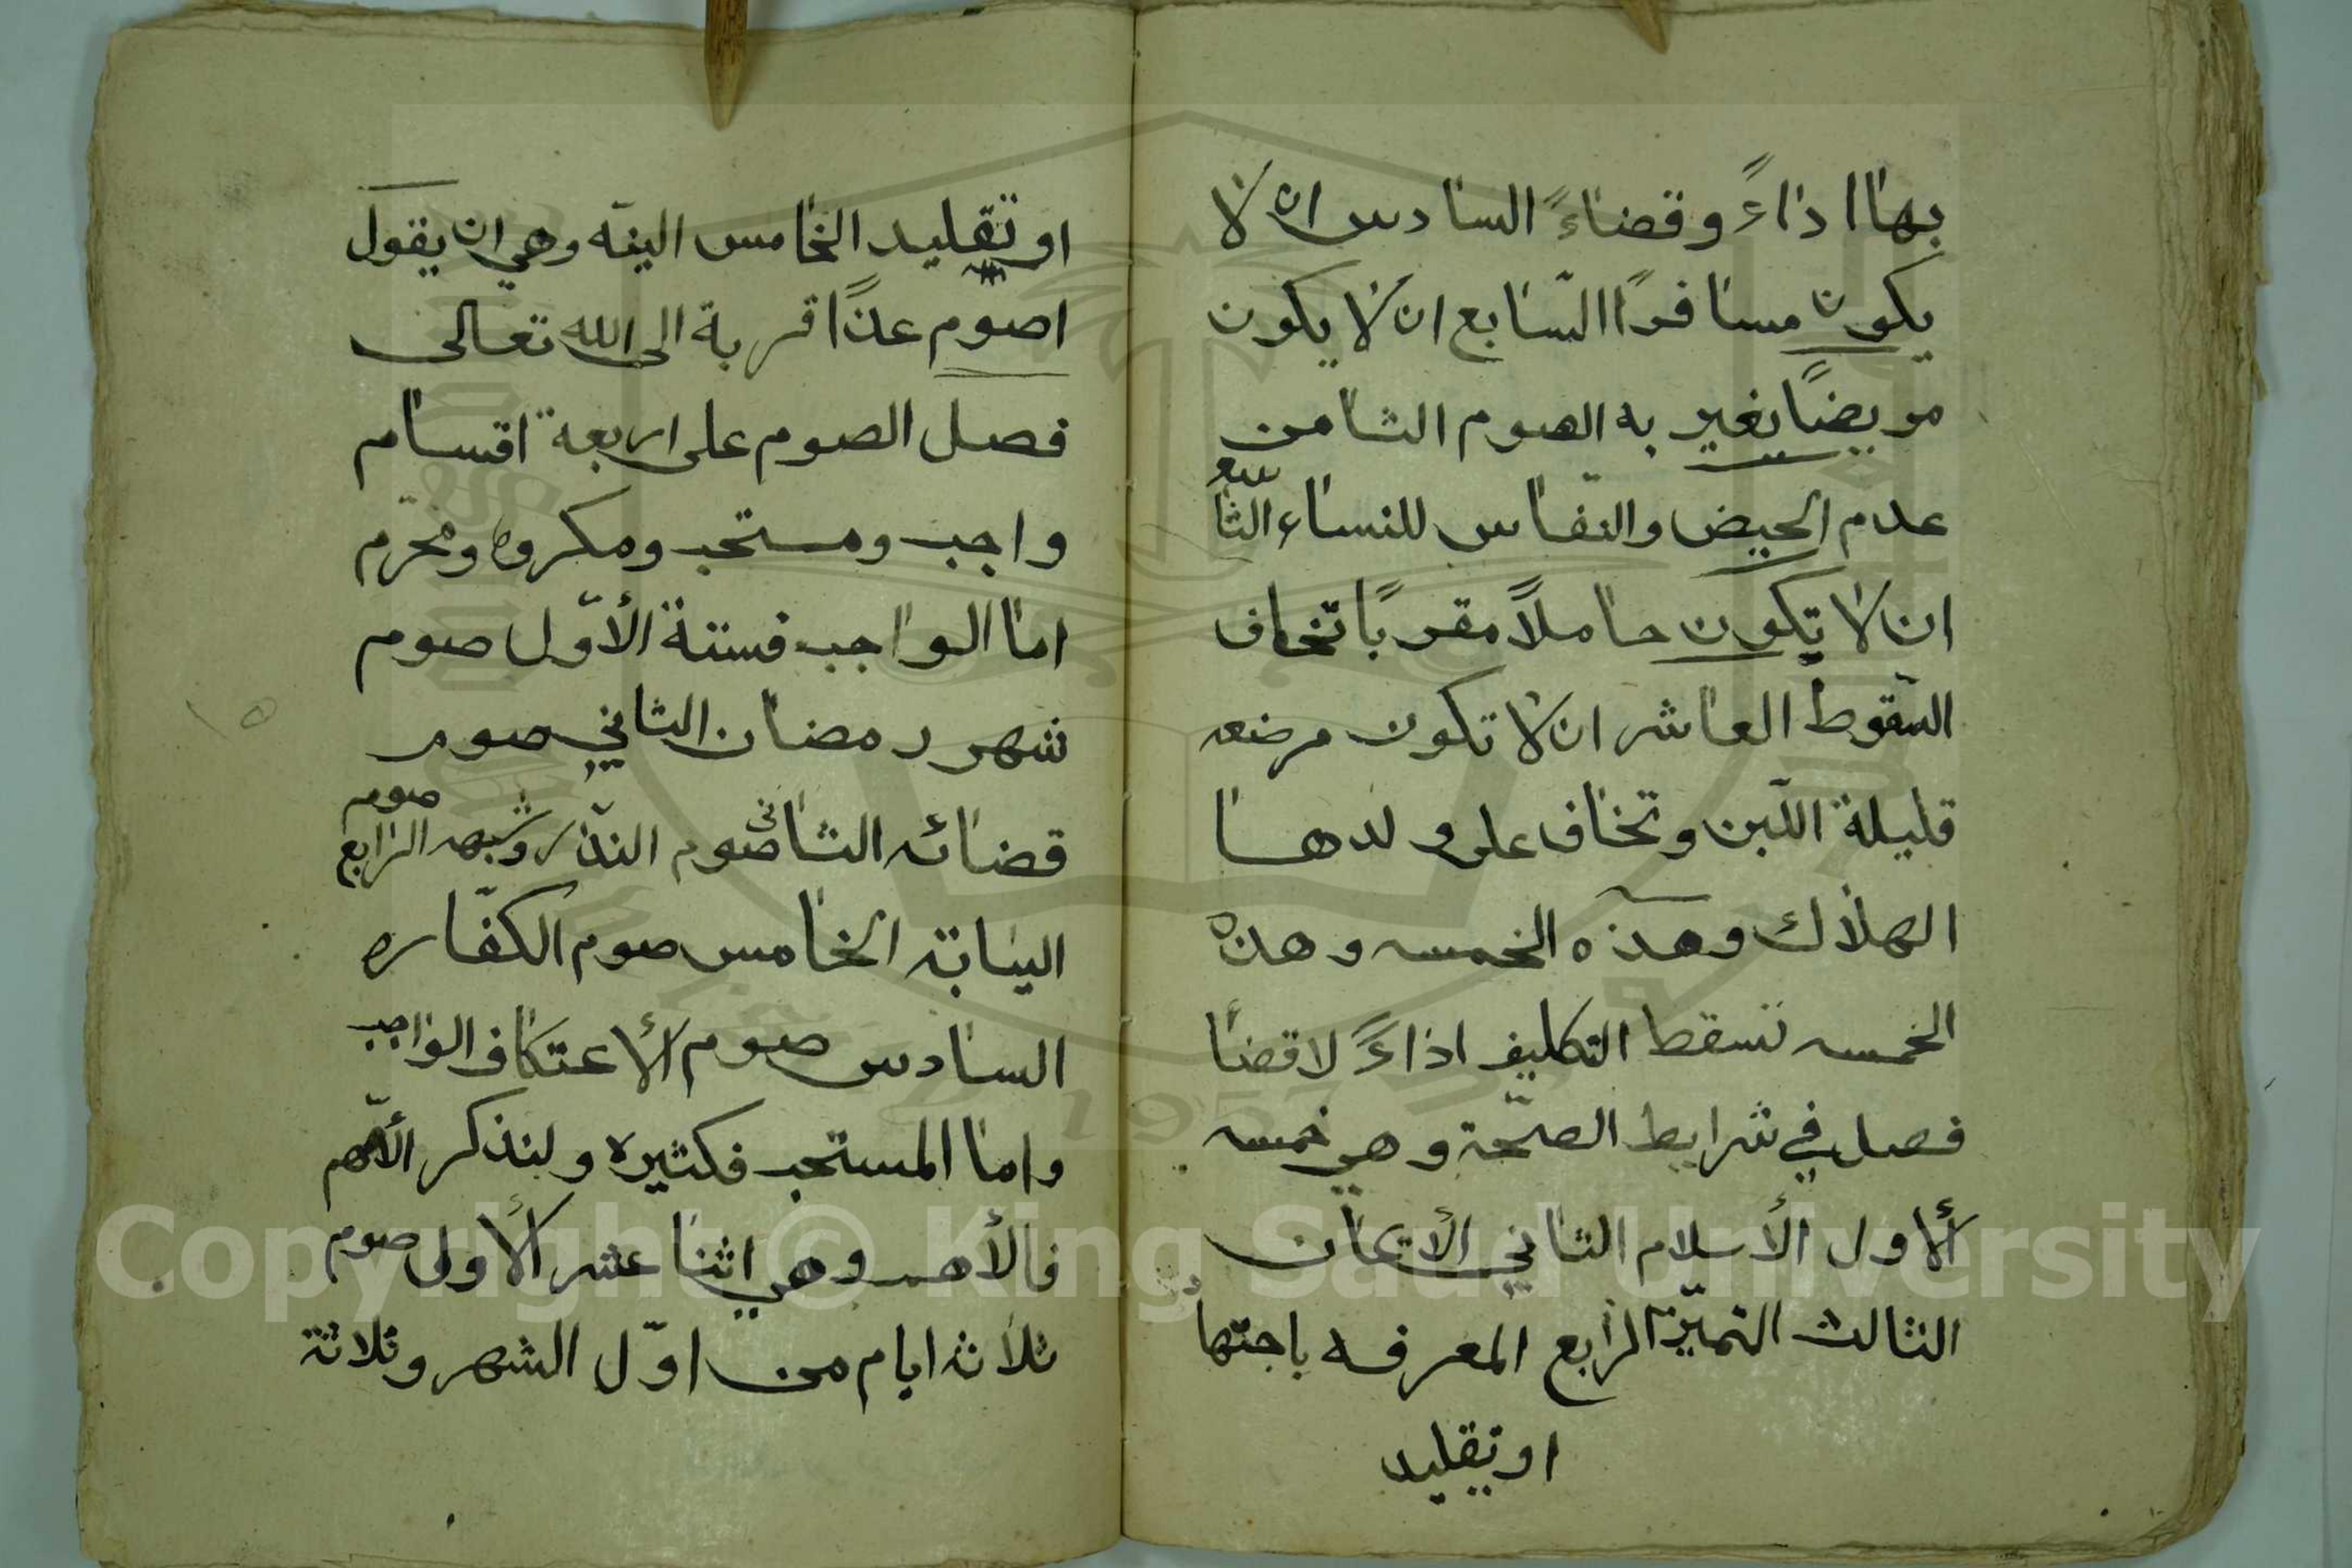 بها اداءً وقضاءً السادس ان لا
يكون مسافرًا السّابع ان لا يكون
مريضًا يغير به الصوم الثامن
عدم الحيض والنفاس للنساء التاسع
ان لا تكون حاملاً مقربًا تخاف
السّقوط العاشر ان لا تكون مرضعه
قليلة اللّبن وتخاف على ولدها
الهلاك وهذه الخمسه وهذه
الخمسه تسقط التكليف اداءً لا قضا
فصل في شرايط الصحّة وهي خمسه
ألاول الأسلام الثاني الأيمان
الثالث التميّز الرابع المعرفه باجتهاد
او تقليد
او تقليد الخامس النيّه وهي ان يقول
اصوم غدًا قربة الى الله تعالى
فصل الصوم على اربعة اقسام
واجب ومستحب ومكروه ومحرّم
اما الواجب فستة الأوّل صوم
شهر رمضان الثاني صوم
قضائه الثاني صوم النذر وشبهه الرابع صوم
النيابة الخامس صوم الكفّاره
السادس صوم ألاعتكاف الواجب
واما المستحب فكثيره ولنذكر الأهم
فالأهم وهي اثنا عشر ألاول صوم
ثلاثة ايام من اوّل الشهر وثلاثة
١٥
Copyright © King Saud University
1957